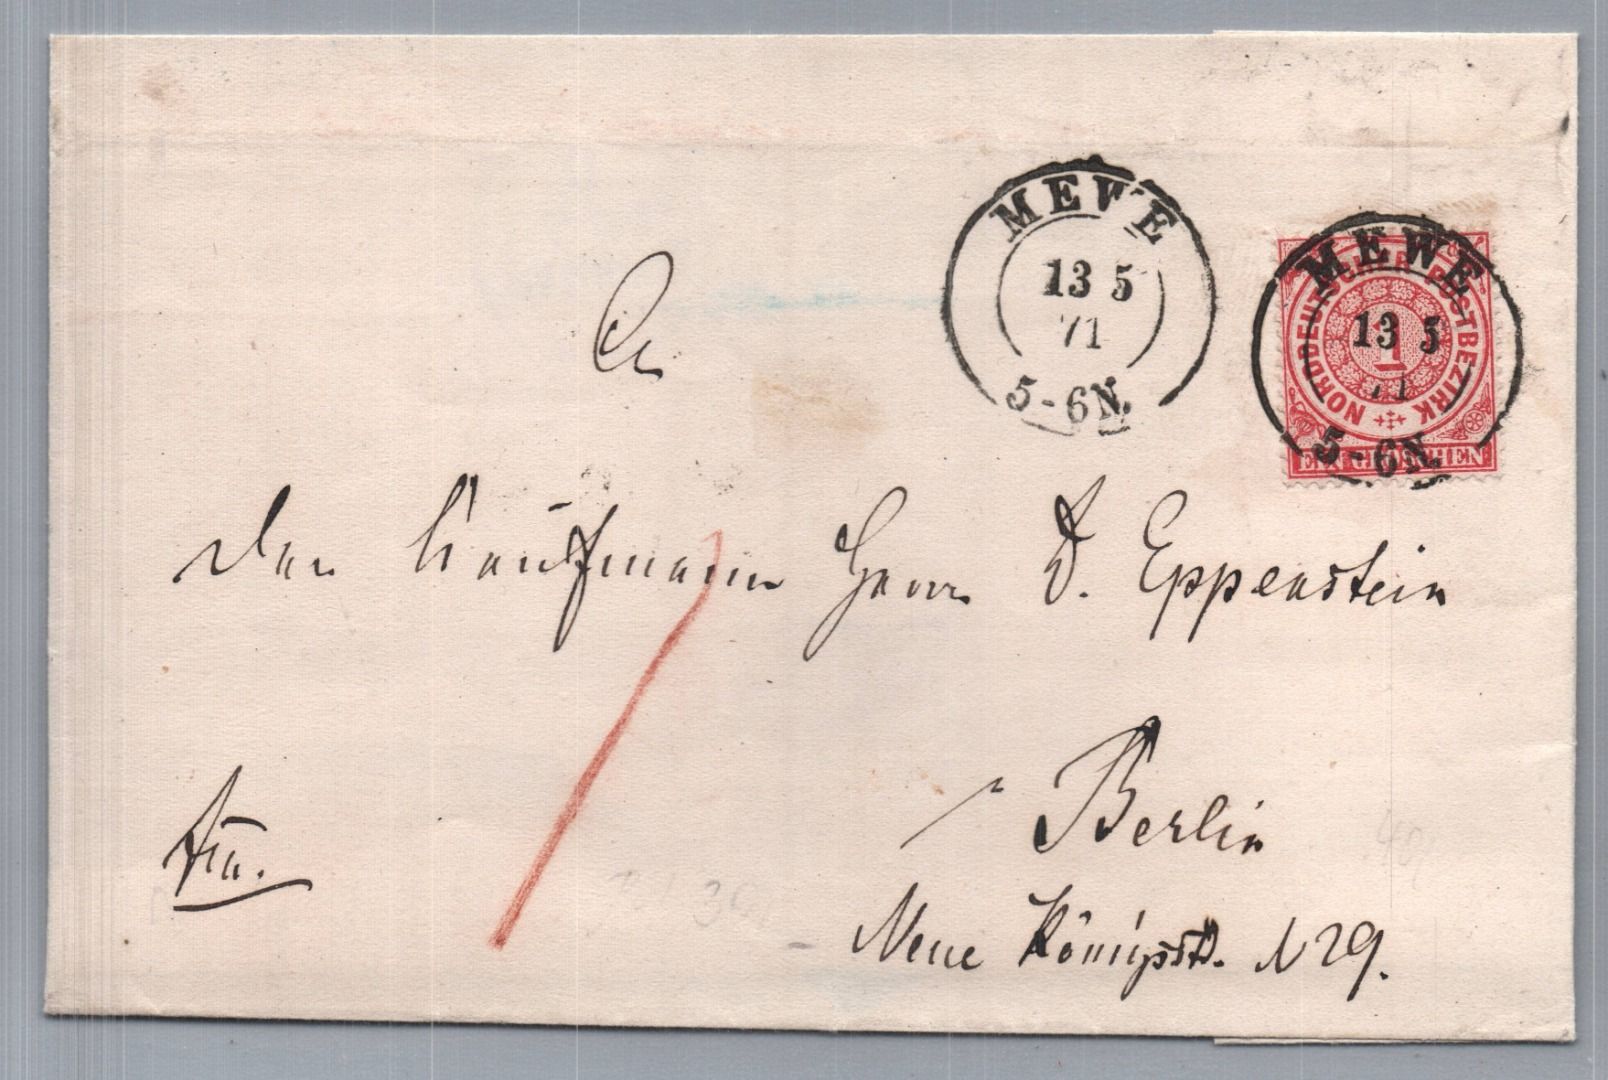 MEWE
13 5
71
5-6N.
MEWE
13 5
71
5-6N.
NORDDEUTSCHER POSTBEZIRK
1
EIN GROSCHEN
An
den Kaufmann Herrn D. Eppenstein
Berlin
fr.
Neue Königsstr. N 29.